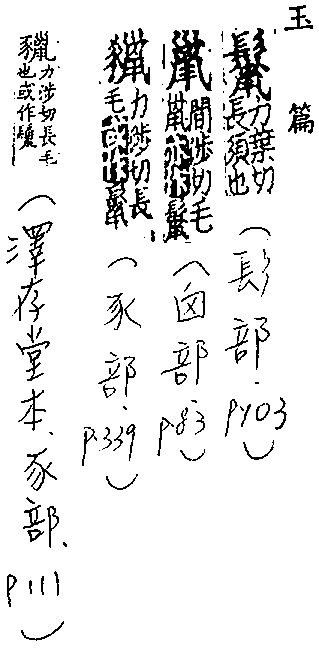 玉篇
鬣力葉切長須也(髟部.P.103)
巤閭涉切毛巤亦作鬣(囟部.P.83)
力涉切長毛(豕部.P.339)
力涉切長毛豕也或作(澤存堂本、豕部、P.111)